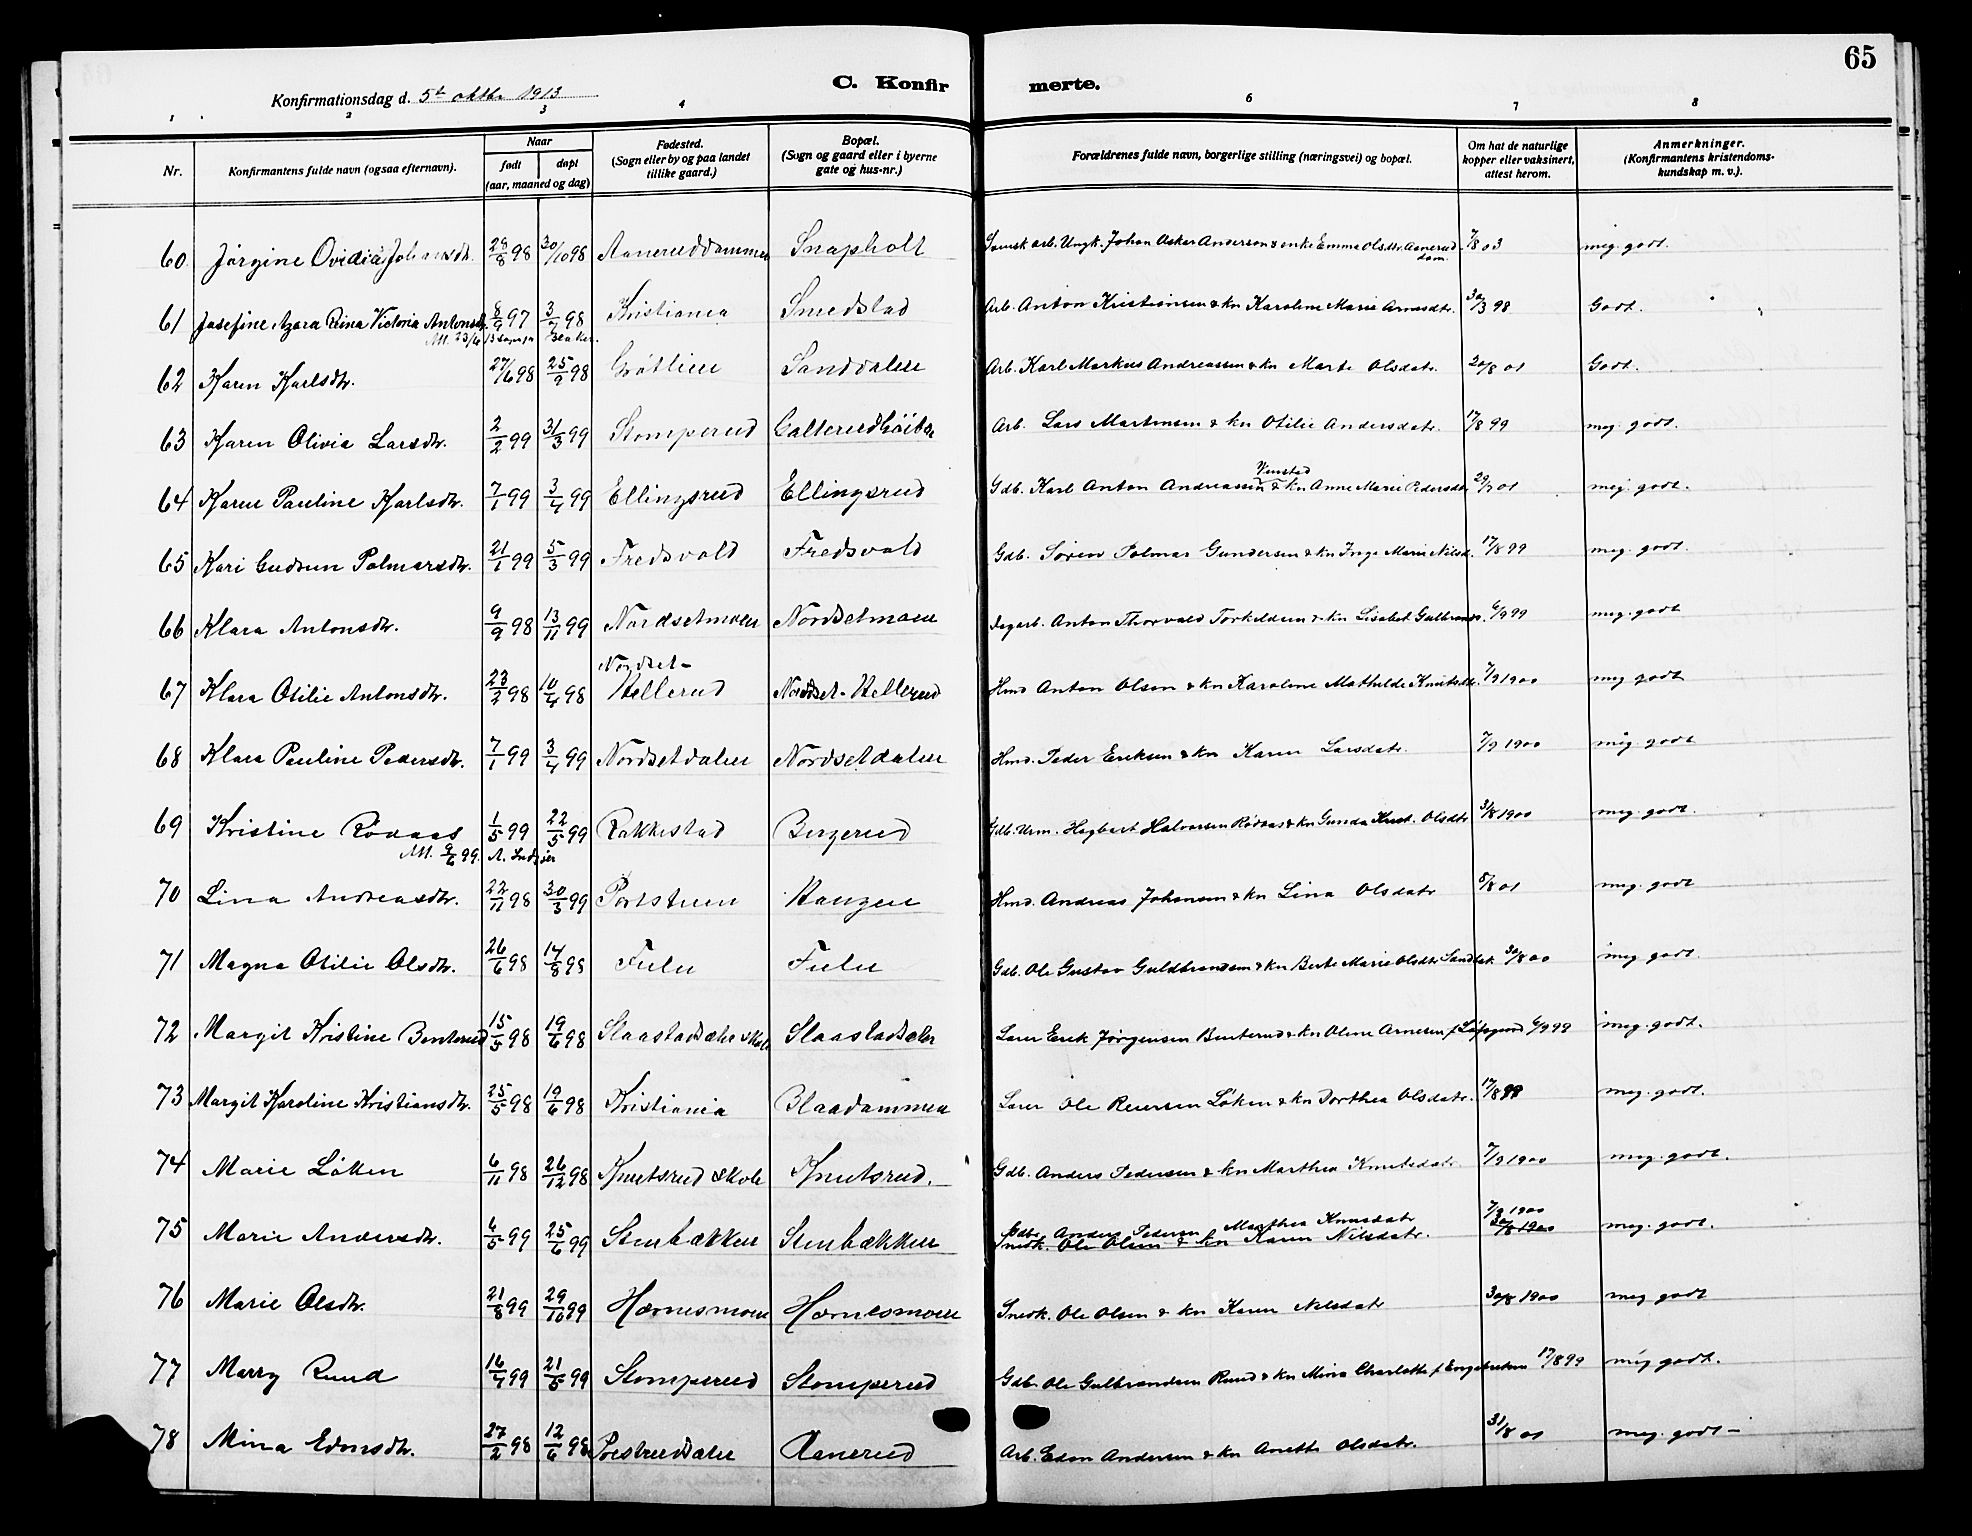 65
C. Konfirmerte.
Konfirmationsdag d. 5te oktbr 1913
1 2 3 4 6 7 8
Nr. Konfirmantens fulde navn (ogsaa efternavn). Naar født døpt (aar, maaned og dag) Fødested. (Sogn eller by og paa landet tillike gaard.) Bopæl. (Sogn og gaard eller i byerne gate og hus-nr.) Forældrenes fulde navn, borgerlige stilling (næringsvei) og bopæl. Om hat de naturlige kopper eller vaksinert, attest herom. Anmerkninger. (Konfirmantens kristendoms-kundskap m. v.).
60 Jørgine Ovidia Johansdtr. 28/8 98 30/10 98 Aaneruddammen Snapholt Svensk arb. Ungk. Johan Oskar Anderson & enke Emma Olsdtr. Aanerud dam. 7/8 03 meg. godt.
61 Josefine Azora Rina Victoria Antonsdtr. 8/9 97 3/7 98 Kristiania Smedstad Arb. Anton Kristiansen & kn Karoline Marie Arnesdtr. 30/3 98 Godt.
Att. 23/6 13
62 Karen Karlsdtr. 27/6 98 25/9 98 Grøtlien Sanddalen Arb. Karl Markus Andreassen & kn Marte Olsdatr. 20/8 01 Godt.
63 Karen Olivia Larsdtr. 2/2 99 31/3 99 Stomperud Galterudhöiten Arb. Lars Martinsen & kn Otilie Andersdatr. 17/8 99 meg. godt.
64 Karen Pauline Karlsdtr. 7/1 99 3/4 99 Ellingsrud Ellingsrud Gdb. Karl Anton Andreassen Venstad & kn Anne Marie Pedersdtr 29/7 01 meg. godt.
65 Kari Gudrun Palmarsdtr. 21/1 99 5/3 99 Fredsvold Fredsvold Gdb. Søren Palmar Gundersen & kn Inga Marie Nilsd. 17/8 99 meg. godt.
66 Klara Antonsdtr. 9/9 98 13/11 99 Nordsetmoen Nordsetmoen dagarb. Anton Thorvald Torkildsen & kn Lisabet Gulbrandr. 6/9 99 meg. godt
67 Klara Otilie Antonsdtr. 23/2 98 10/4 98 Nordset-Hellerud Nordset-Hellerud Hmd Anton Olsen & kn Karoline Mathilde Knutsdtr. 7/9 1900 meg godt
68 Klara Pauline Pedersdtr. 7/1 99 3/4 99 Nordsetdalen Nordsetdalen Hmd. Peder Eriksen & kn Karen Larsdatr. 7/9 1900 meg. godt
69 Kristine Rödaas 1/5 99 22/5 99 Rakkestad Bergerud Gdb. Urm. Hagbart Halvorsen Rødaas & kn Gunda Krist. Olsdtr 31/8 1900 meg. godt.
Att. 9/6 99.
70 Lina Andreasdtr. 22/11 98 30/3 99 Portstuen Haugen Hmd. Andreas Johansen & kn Lina Olsdatr 8/8 01 meg. godt
71 Magna Otilie Olsdtr. 26/6 98 14/8 98 Fulu Fulu Gdb. Ole Gustav Guldbrandsen & kn Berte Marie Olsdtr. Sandbæk 30/8 00 meg. godt.
72 Margit Kristine Benterud 15/5 98 19/6 98 Slaastadsæter skole Slaastadsæter Lærer Erik Jørgensen Benterud & kn Oline Arnesen f. Løfsgaard 6/9 99 meg. godt.
73 Margit Karoline Kristiansdtr. 25/5 98 19/6 98 Kristiania Blaadammen Lærer Ole Reiersen Løken & kn Dorthea Olsdatr. 17/8 98 meg. godt.
74 Marie Løken 6/11 98 26/12 98 Knutsrud skole Knutsrud. Gdb. Anders Pedersen & kn Marthea Knutsdatr 7/9 1900 meg. godt.
75 Marie Andersdtr. 4/5 99 25/6 99 Stenbækken Stenbækken Gdb. Anders Pedersen Marthea Knutsdatr 7/9 1900 meg. godt.
Snedk. Ole Olsen & kn Karen Nilsdatr. 30/8 1900
76 Marie Olsdtr. 21/8 99 29/10 99 Hærnesmoen Hærnesmoen Snedk. Ole Olsen & kn Karen Nilsdatr 30/8 1900 meg godt
77 Marry Ruud 16/4 99 21/5 99 Stomperud Stomperud Gdb. Ole Gulbrandsen Ruud & kn Mina Charlotte f. Engebretsen 17/8 99 meg godt.
78 Mina Edonsdtr. 27/2 98 12/6 98 Aanerud Arb. Edon Andersen & kn Anette Olsdatr. 31/8 01 meg. godt